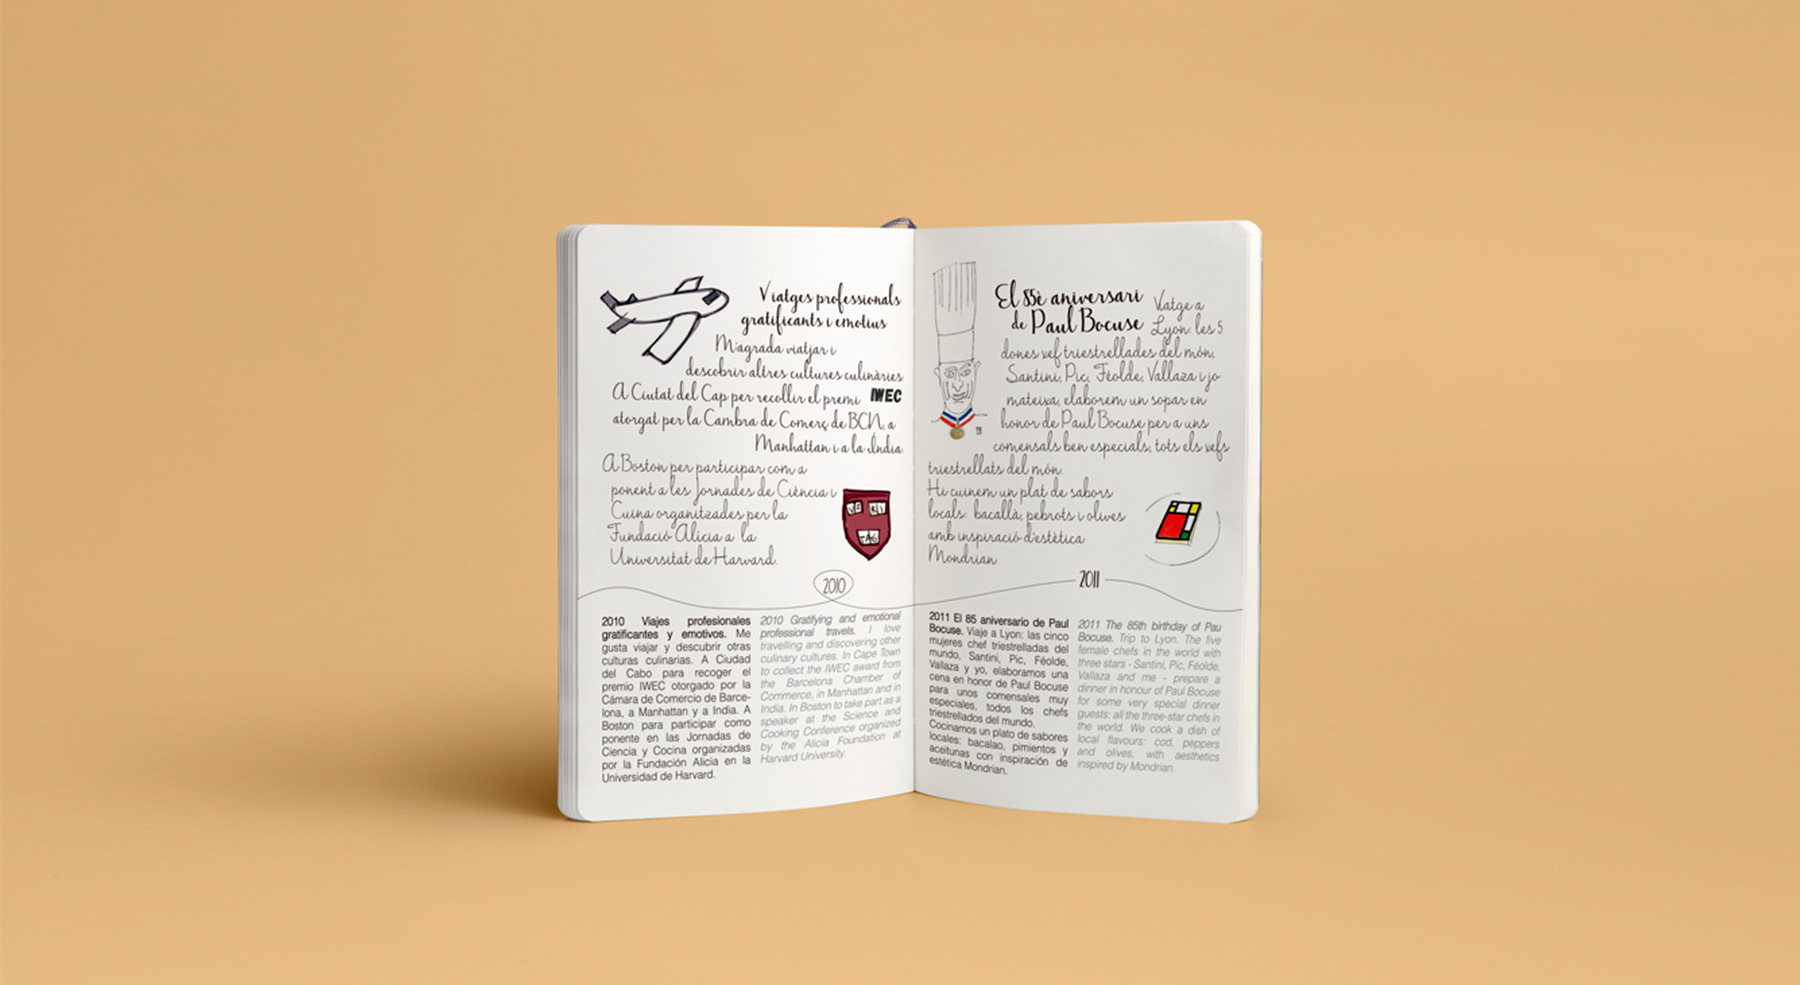 Viatges professionals
gratificants i emotius
M'agrada viatjar i
descobrir altres cultures culinàries.
A Ciutat del Cap per recollir el premi IWEC
atorgat per la Cambra de Comerç de BCN, a
Manhattan i a la Índia.
A Boston per participar com a
ponent a les Jornades de Ciència i
Cuina organitzades per la
Fundació Alícia a la
Universitat de Harvard.
VE RI
TAS
2010
2010 Viajes profesionales
gratificantes y emotivos. Me
gusta viajar y descubrir otras
culturas culinarias. A Ciudad
del Cabo para recoger el
premio IWEC otorgado por la
Cámara de Comercio de Barce-
lona, a Manhattan y a India. A
Boston para participar como
ponente en las Jornadas de
Ciencia y Cocina organizadas
por la Fundación Alicia en la
Universidad de Harvard.
2010 Gratifying and emotional
professional travels. I love
travelling and discovering other
culinary cultures. In Cape Town
to collect the IWEC award from
the Barcelona Chamber of
Commerce, in Manhattan and in
India. In Boston to take part as a
speaker at the Science and
Cooking Conference organized
by the Alicia Foundation at
Harvard University.
El 85è aniversari
de Paul Bocuse
Viatge a
Lyon: les 5
dones xef triestrellades del món,
Santini, Pic, Féolde, Vallaza i jo
mateixa, elaborem un sopar en
honor de Paul Bocuse per a uns
comensals ben especials, tots els xefs
triestrellats del món.
Hi cuinem un plat de sabors
locals: bacallà, pebrots i olives
amb inspiració d'estètica
Mondrian.
2011
2011 El 85 aniversario de Paul
Bocuse. Viaje a Lyon: las cinco
mujeres chef triestrelladas del
mundo, Santini, Pic, Féolde,
Vallaza y yo, elaboramos una
cena en honor de Paul Bocuse
para unos comensales muy
especiales, todos los chefs
triestrellados del mundo.
Cocinamos un plato de sabores
locales: bacalao, pimientos y
aceitunas con inspiración de
estética Mondrian.
2011 The 85th birthday of Pau
Bocuse. Trip to Lyon. The five
female chefs in the world with
three stars - Santini, Pic, Féolde,
Vallaza and me - prepare a
dinner in honour of Paul Bocuse
for some very special dinner
guests: all the three-star chefs in
the world. We cook a dish of
local flavours: cod, peppers
and olives, with aesthetics
inspired by Mondrian.